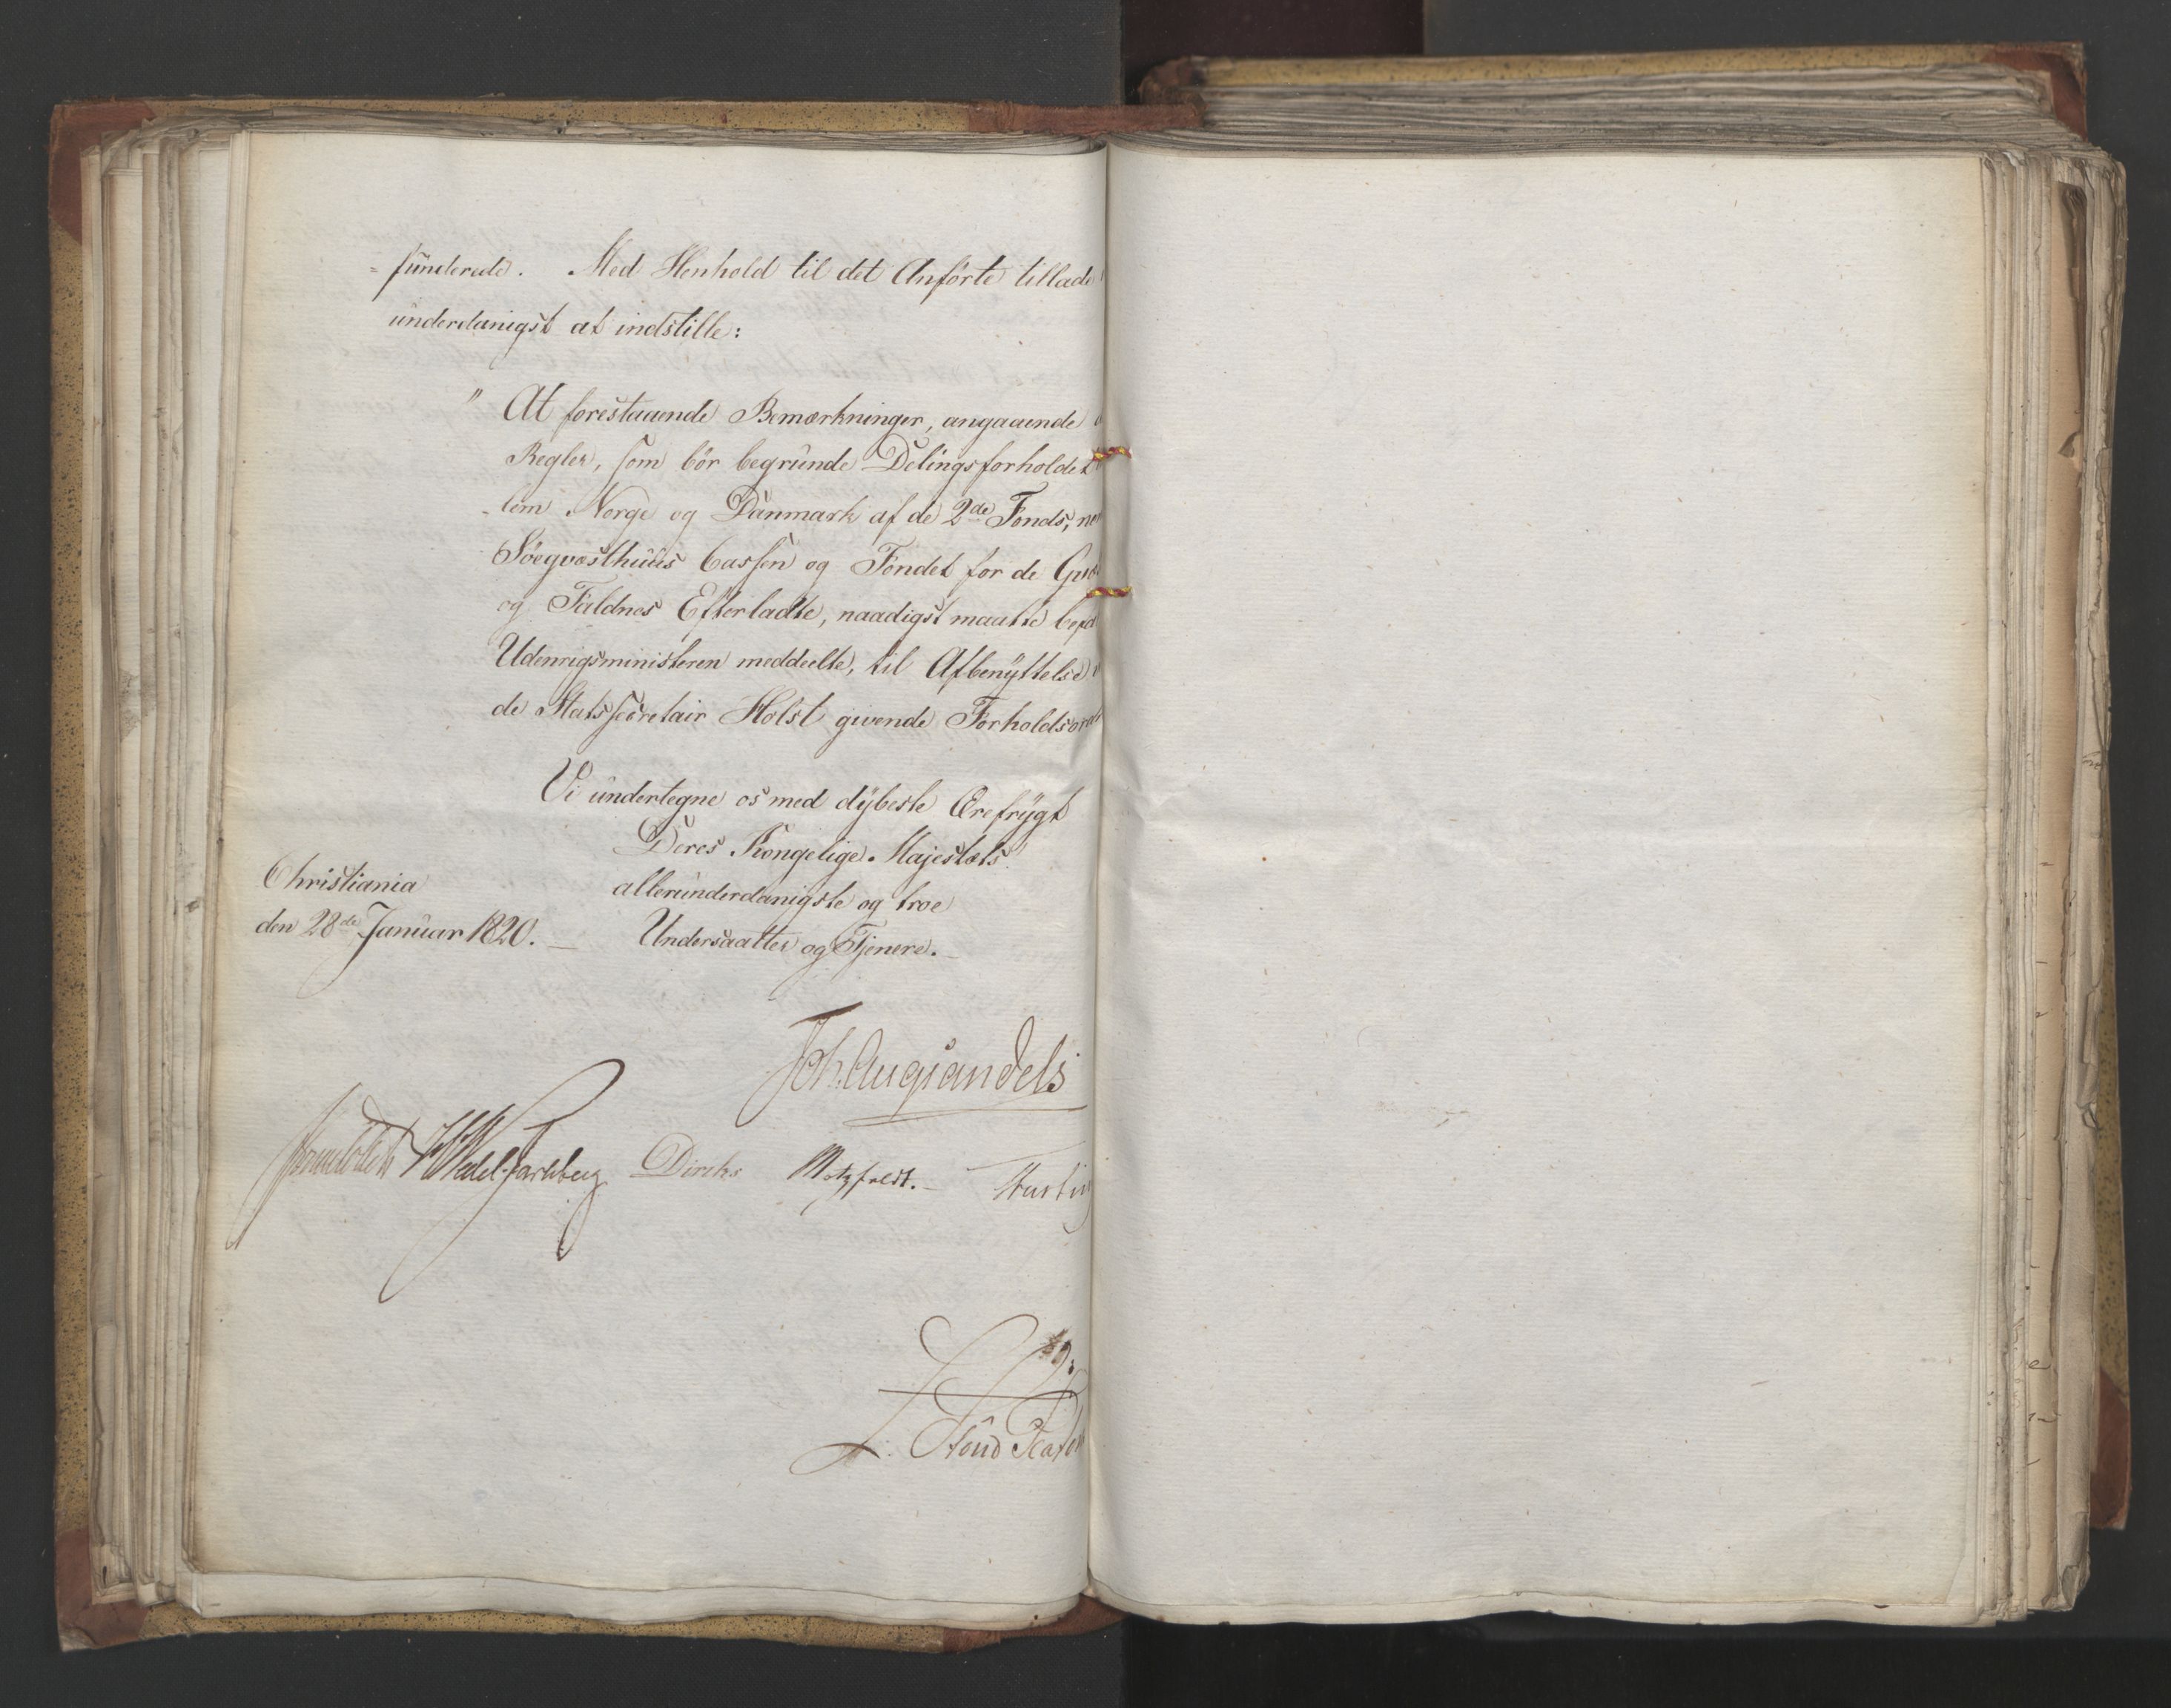 = funderede. Med Henhold til det Anförte tillade
underdanigst at indstille:
" At forestaaende Bemærkninger, angaaende
Regler, som bör begrunde Delingsforholdet
- lem Norge og Danmark af de 2de Fonds,
Söeqvæsthuus Cassen og Fondet for de
og Faldnes Efterladte, naadigst maatte
Udenrigsministeren meddeelte, til Afbenyttelse
de Statssecretair Holst givende
Vi undertegne os med dybeste Ærefrygt
Deres Kongelige Majestæts
allerunderdanigste og troe
Undersaatter og Tjenere.
Christiania
den 28de Januar 1820. —
Joh. Aug Sandels
Sommerhielm HWedel-Jarlsberg Diriks Motzfeldt. —